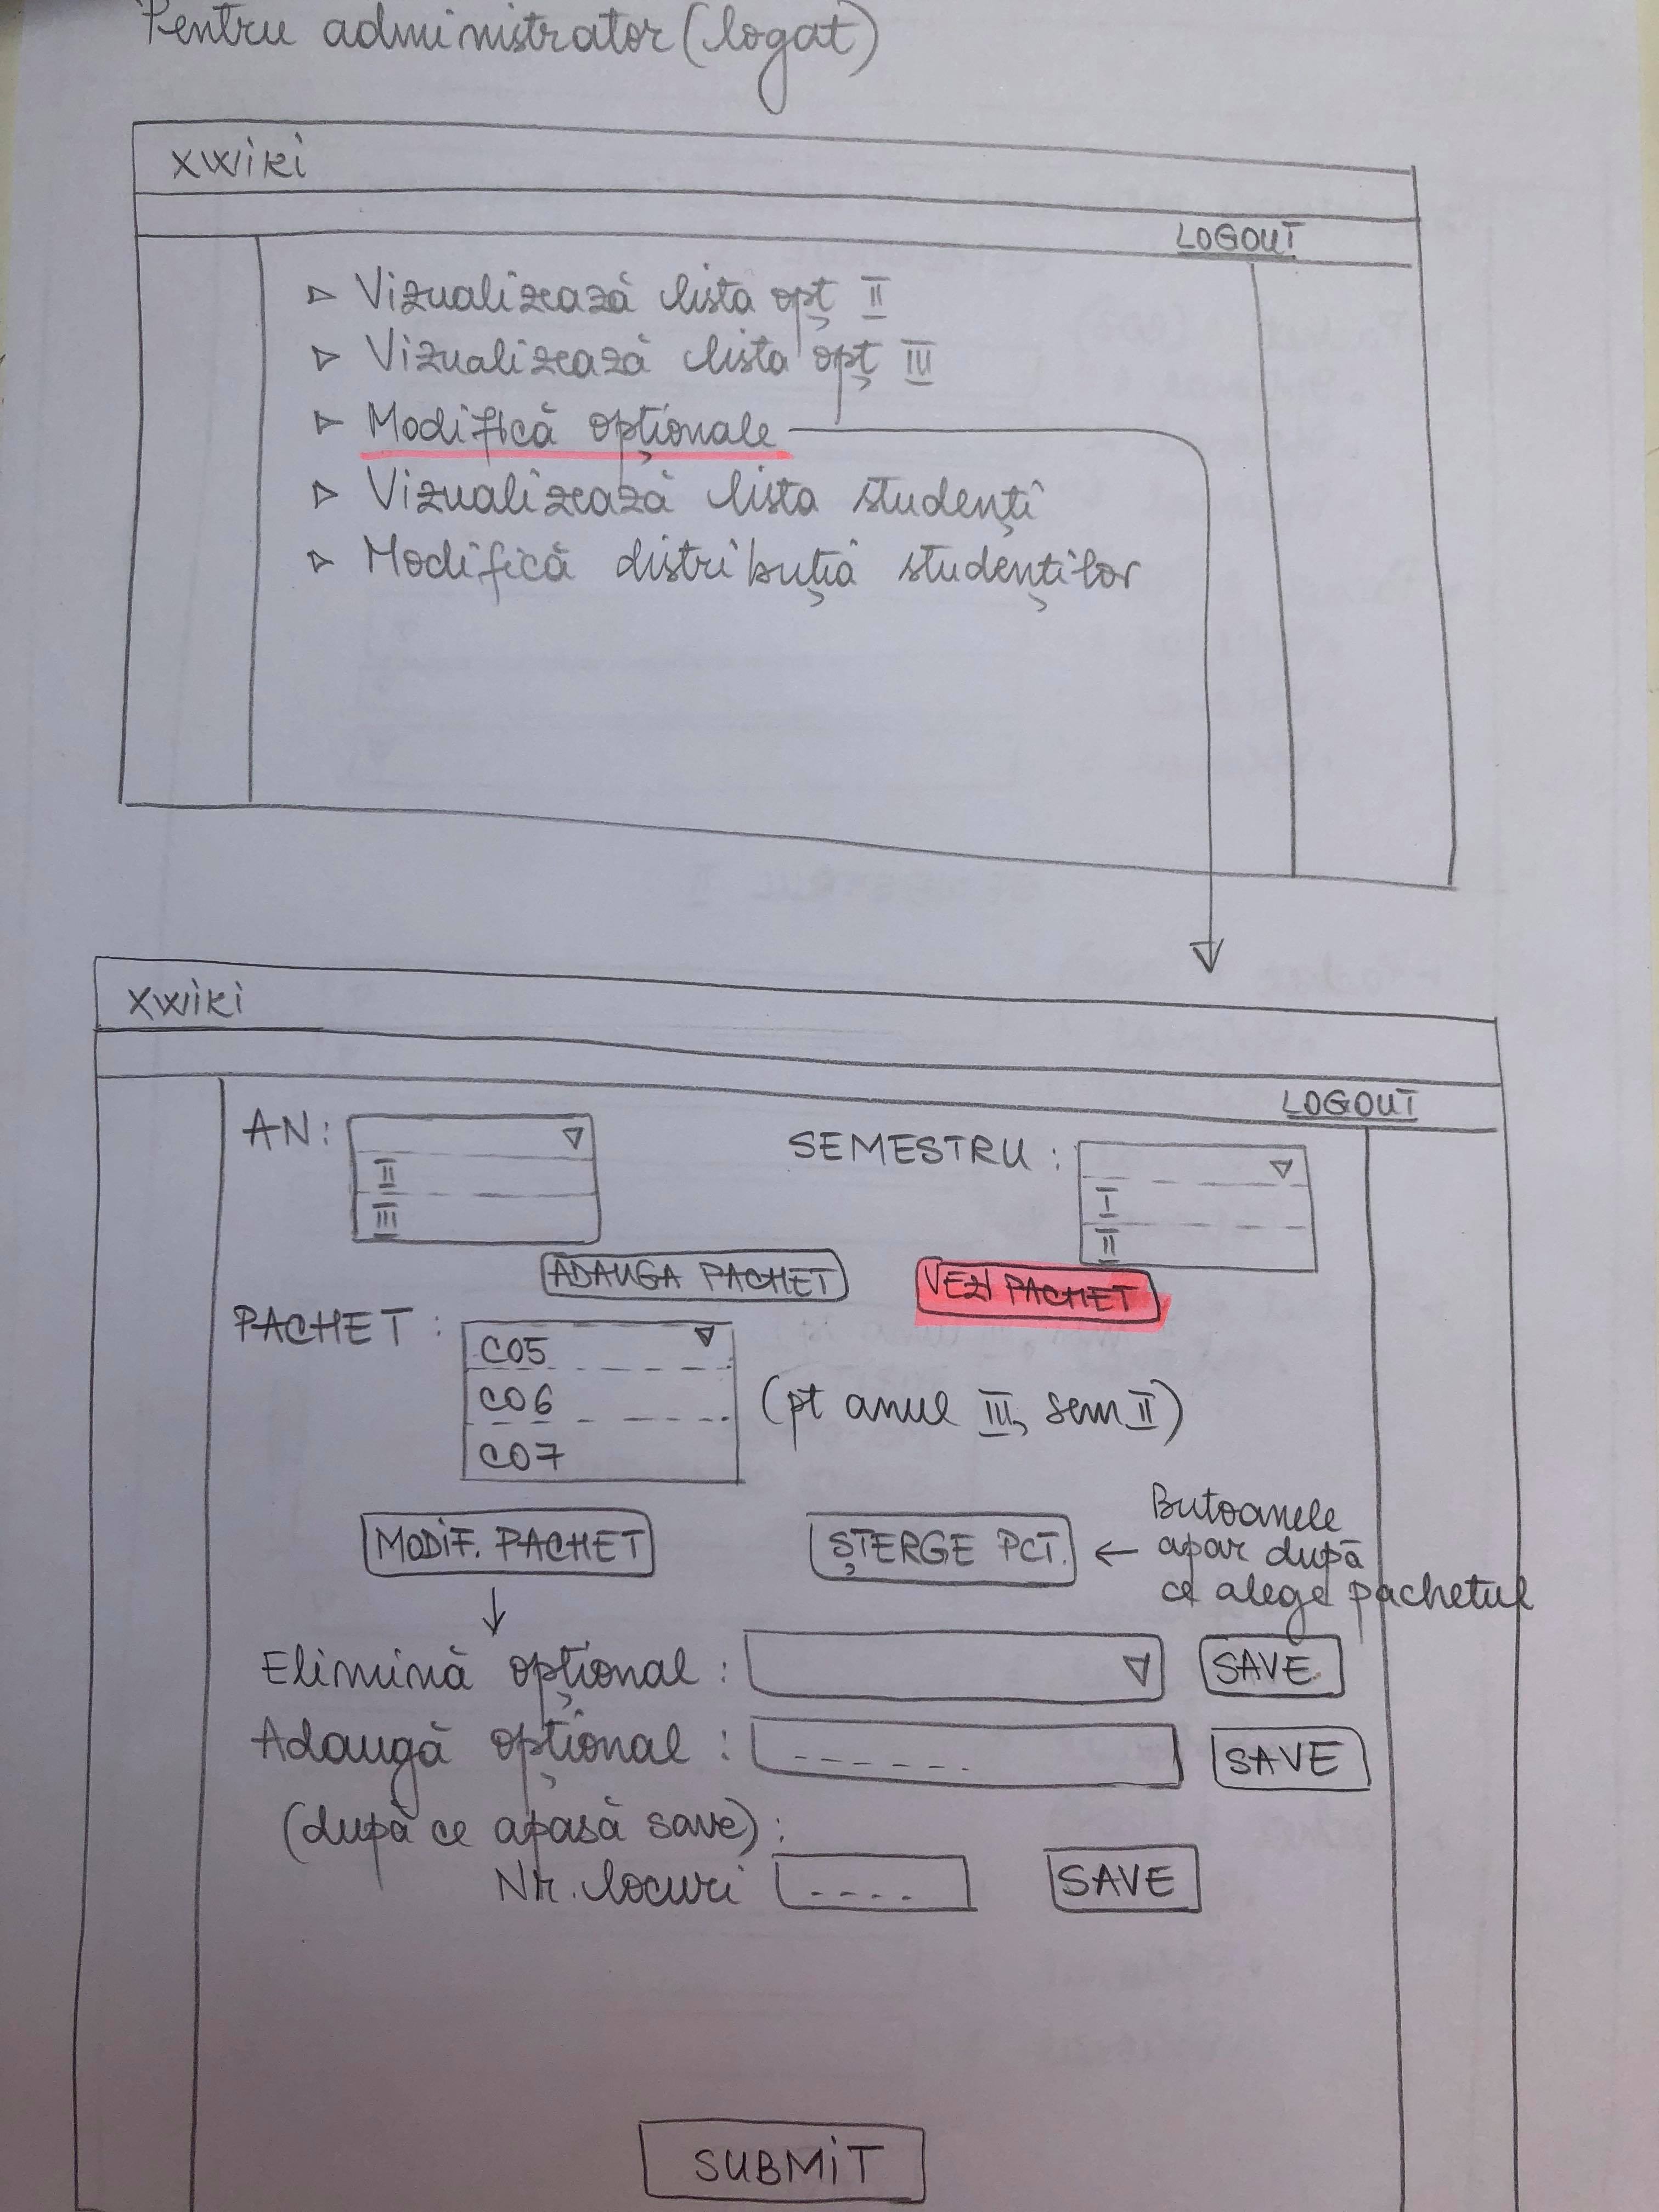 Pentru administrator (logat)
xwiki
LOGOUT
▷ Vizualizează lista opț II
▷ Vizualizează lista opț III
▷ Modifică opționale
▷ Vizualizează lista studenți
▷ Modifică distribuția studenților
xwiki
LOGOUT
AN: SEMESTRU:
II
III
I
II
ADAUGA PACHET VEZI PACHET
PACHET: CO5
CO6
CO7
(pt anul III, sem II)
MODIF. PACHET ȘTERGE PCT. ← Butoanele
apar după
ce alege pachetul
Elimină opțional: SAVE
Adaugă opțional: SAVE
(după ce apasă save):
Nr. locuri SAVE
SUBMIT